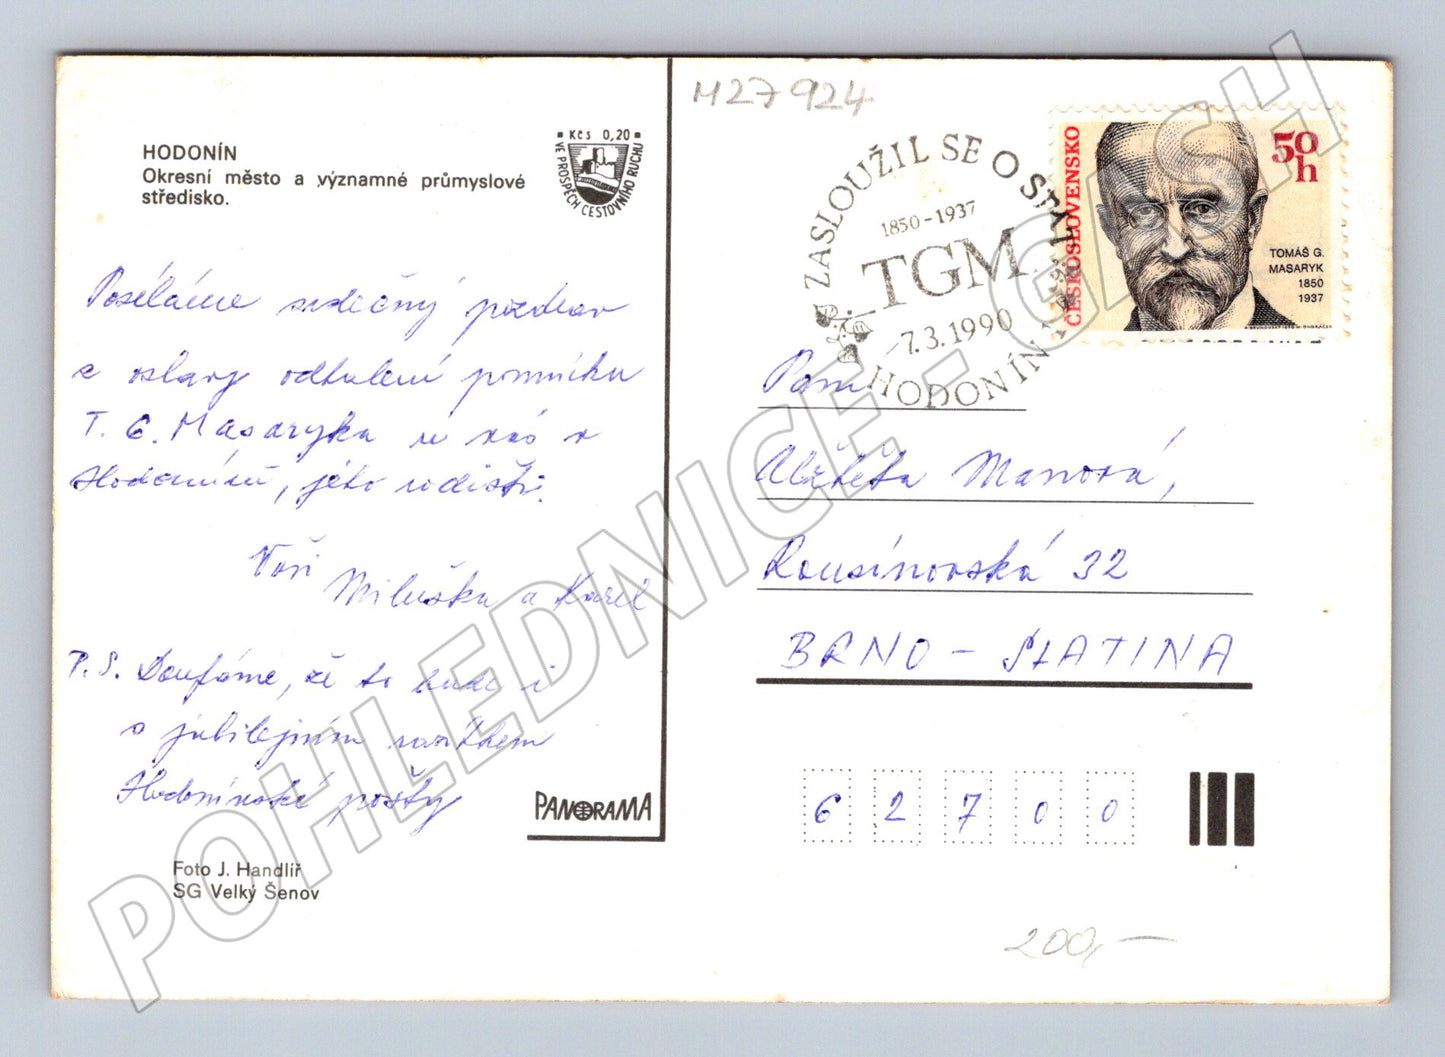 HODONÍN
Okresní město a významné průmyslové
středisko.
Kčs 0,20
VE PROSPĚCH CESTOVNÍHO RUCHU
Posíláme srdečný pozdrav
z oslavy odhalení pomníku
T. G. Masaryka u nás v
Hodoníně, jeho rodišti.
Vaši
Miluška a Karel
P.S. Doufáme, že to bude i
s jubilejním razítkem
Hodonínské pošty
PANORAMA
Foto J. Handlíř
SG Velký Šenov
M27924
ZASLOUŽIL SE O STÁT
1850-1937
TGM
7.3.1990
HODONÍN 1
ČESKOSLOVENSKO
50
h
TOMÁŠ G.
MASARYK
1850
1937
Paní
Alžběta Manová,
Rousínovská 32
BRNO - SLATINA
6 2 7 0 0
200,-
POHLEDNICE - GASH